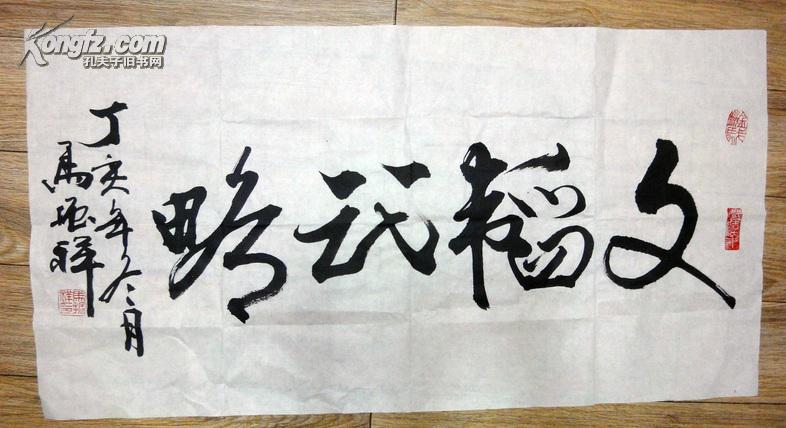 文韬武略
丁亥年冬月
马振祥
Kongfz.com
孔夫子旧书网